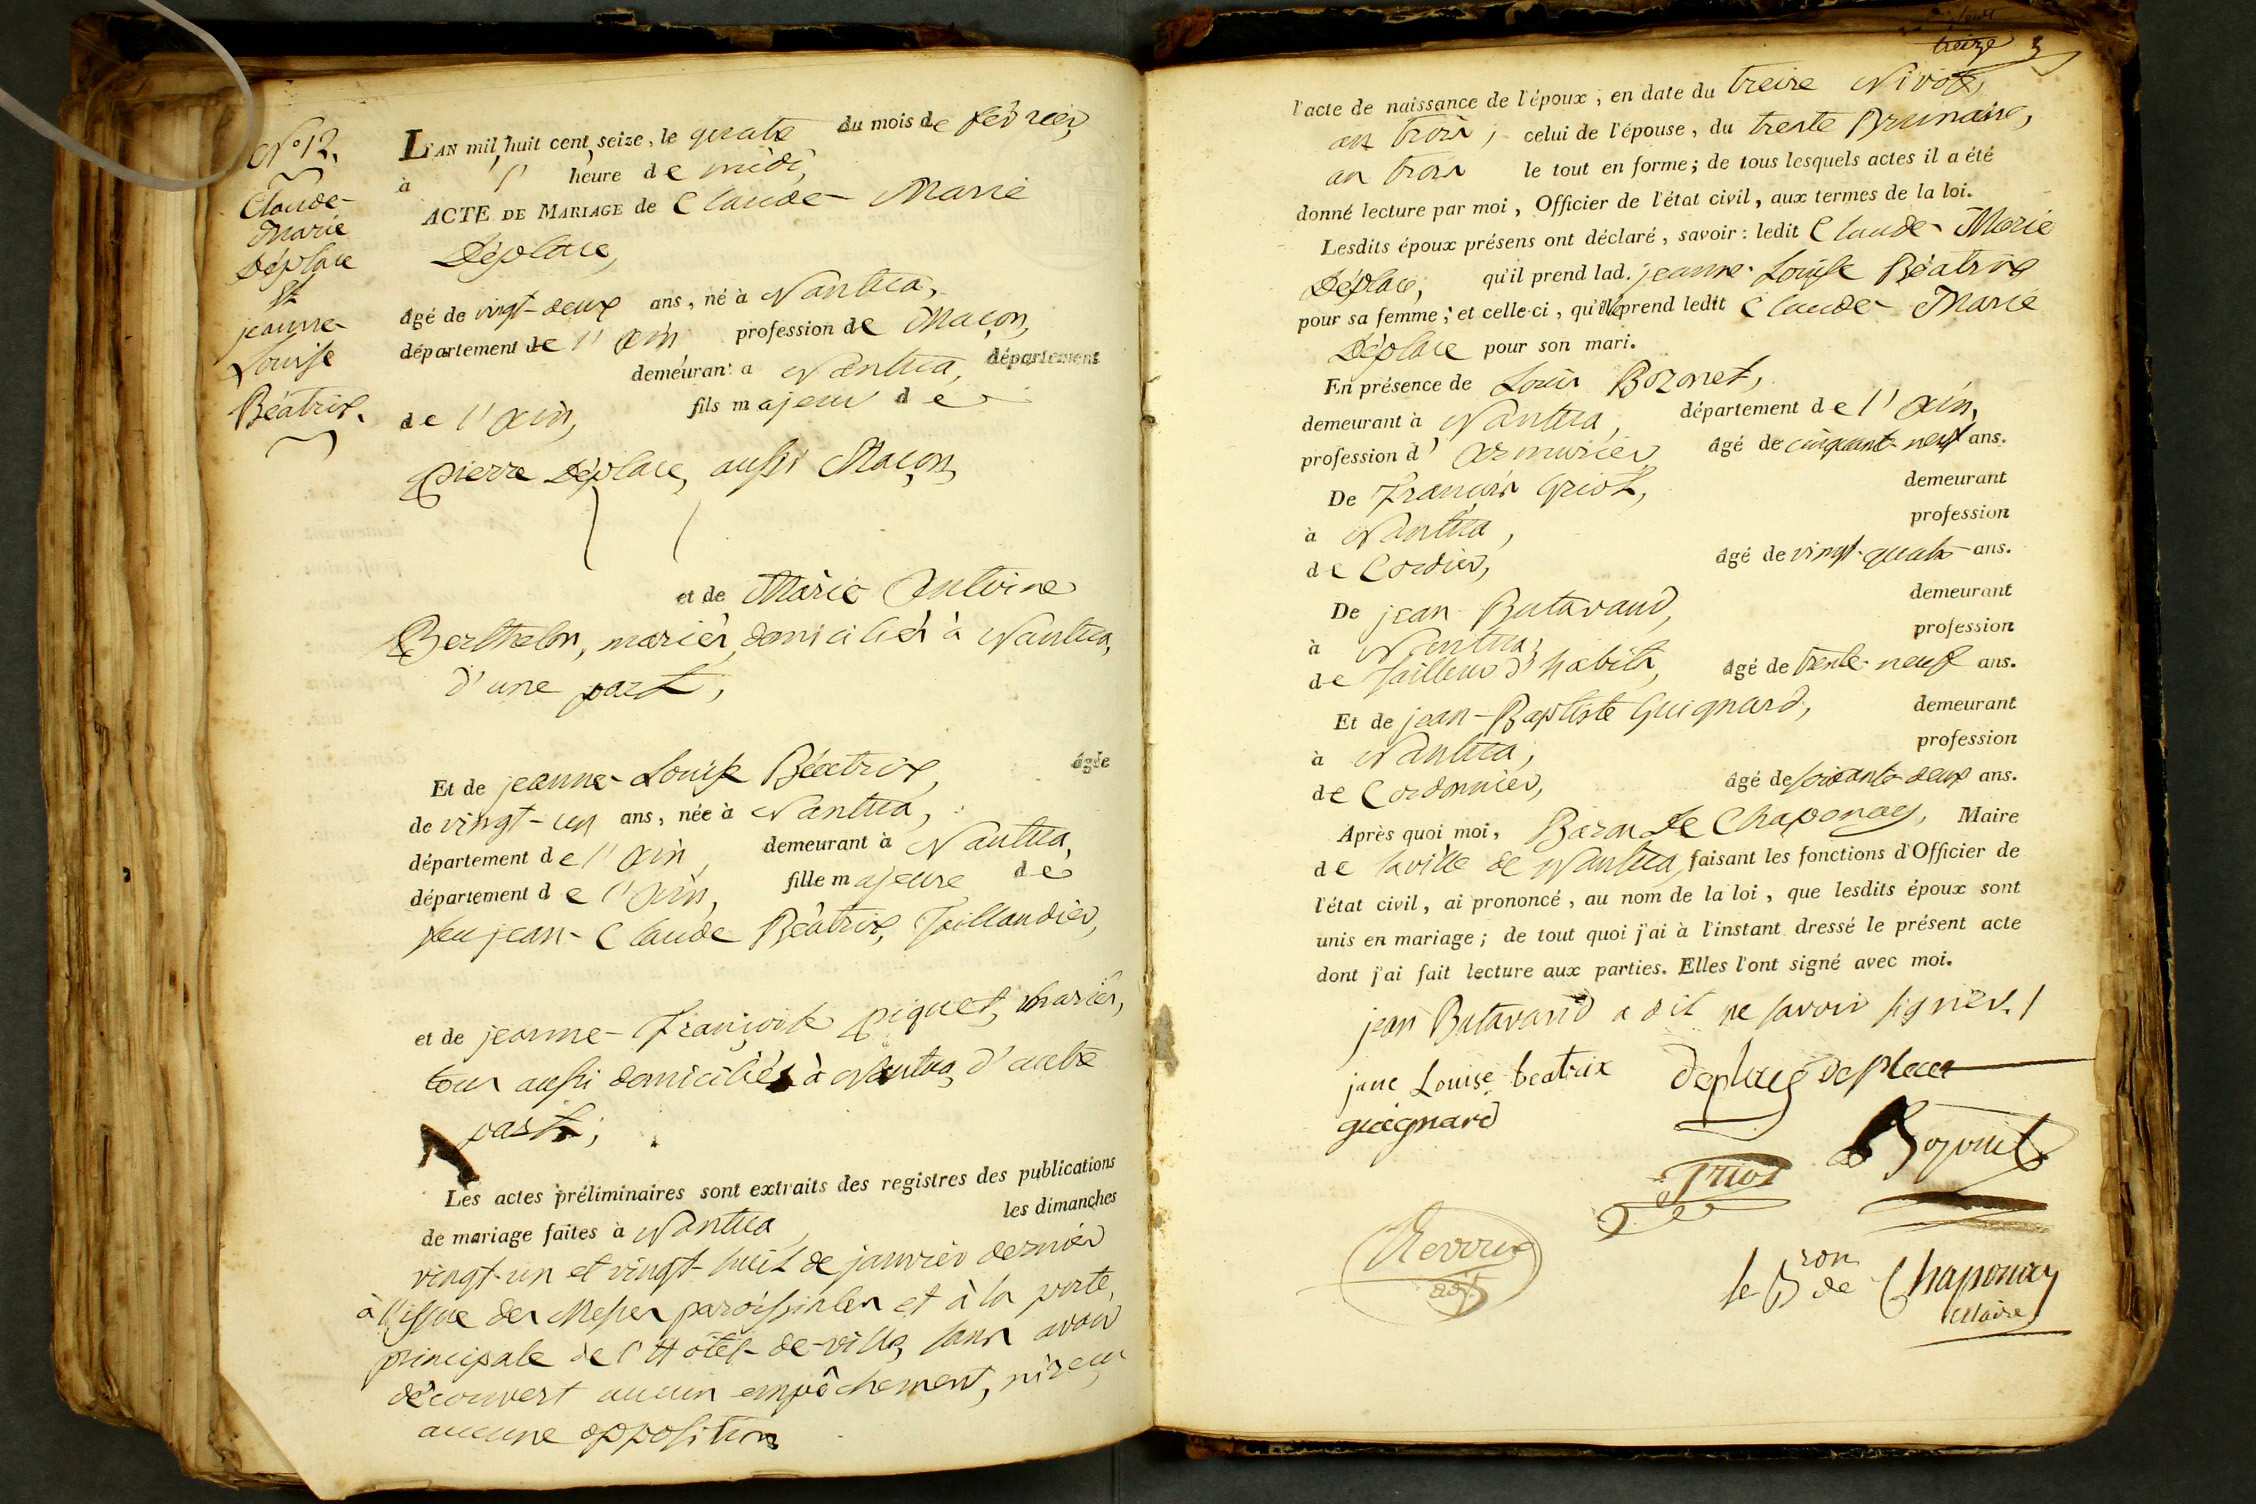 N.° 12.
Claude-
Marie
Déplace
Et
jeanne-
Louise
Béatrix.
L'AN mil huit cent seize, le quatre du mois de février,
à l' heure de midi,
ACTE DE MARIAGE de Claude-Marie
Déplace,
âgé de vingt-deux ans, né à Nantua,
département de l'Ain profession de Maçon,
demeurant à Nantua, département
de l'Ain, fils majeur de
Pierre Déplace, aussi Maçon,
et de Marie Antoine
Berthelon, mariés, domiciliés à Nantua,
d'une part,
Et de jeanne-Louise Béatrix, âgée
de vingt-un ans, née à Nantua,
département de l'Ain, demeurant à Nantua,
département de l'Ain, fille majeure de
feu jean-Claude Béatrix, Taillandier,
et de jeanne-Françoise Piquet, mariés,
tous aussi domiciliés à Nantua, d'autre
part;
Les actes préliminaires sont extraits des registres des publications
de mariage faites à Nantua, les dimanches
vingt-un et vingt-huit de janvier dernier
à l'issue des Messes paroissiales et à la porte,
principale de l'Hôtel-de-ville, sans avoir
découvert aucun empêchement, ni reçu
aucune opposition
treize
l'acte de naissance de l'époux, en date du treize Nivôse,
an trois; celui de l'épouse, du trente Brumaire,
an trois le tout en forme; de tous lesquels actes il a été
donné lecture par moi, Officier de l'état civil, aux termes de la loi.
Lesdits époux présens ont déclaré, savoir: ledit Claude-Marie
Déplace, qu'il prend lad. jeanne-Louise Béatrix
pour sa femme; et celle-ci, qu'elle prend ledit Claude-Marie
Déplace pour son mari.
En présence de Louis Bozonet,
demeurant à Nantua, département de l'Ain,
profession d'Armurier âgé de cinquante-neuf ans.
De François Griot, demeurant
à Nantua, profession
de Cordier, âgé de vingt-quatre ans.
De jean Butavand, demeurant
à Nantua, profession
de Tailleur d'habits, âgé de trente-neuf ans.
Et de jean-Baptiste Guignard, demeurant
à Nantua, profession
de Cordonnier, âgé de soixante-deux ans.
Après quoi moi, Baron De Chaponay, Maire
de la ville de Nantua, faisant les fonctions d'Officier de
l'état civil, ai prononcé, au nom de la loi, que lesdits époux sont
unis en mariage; de tout quoi j'ai à l'instant dressé le présent acte
dont j'ai fait lecture aux parties. Elles l'ont signé avec moi.
jean Butavand a dit ne savoir signer./
jane Louise beatrix deplace Deplace
guignard
Bozonet
Griot
le B.ron de Chaponay
Maire